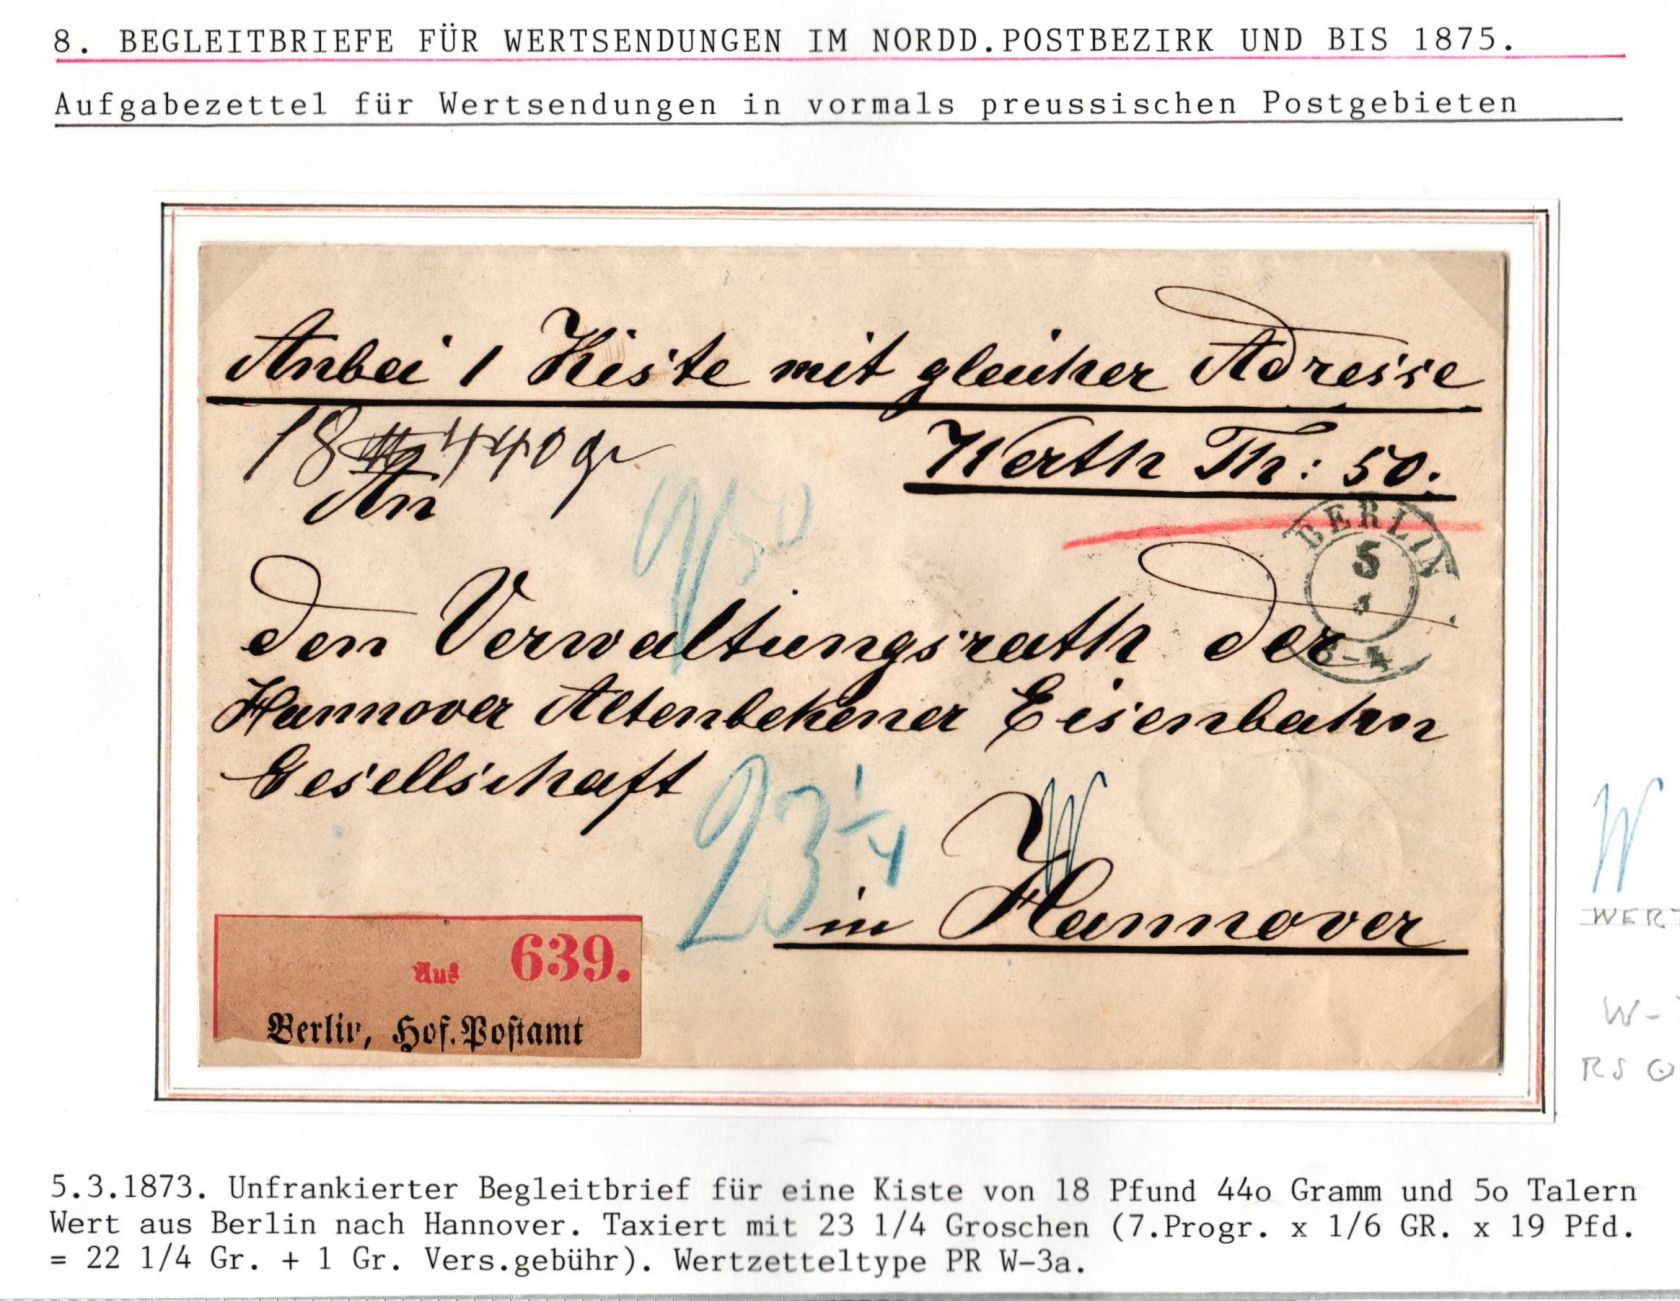 8. BEGLEITBRIEFE FÜR WERTSENDUNGEN IM NORDD.POSTBEZIRK UND BIS 1875.
Aufgabezettel für Wertsendungen in vormals preussischen Postgebieten
Anbei 1 Kiste mit gleicher Adresse
18 440 gr
Werth Th: 50.
An
9/50
BERLIN
5
3
den Verwaltungsrath der
Hannover Altenbekener Eisenbahn
Gesellschaft
23 1/4
W
in Hannover
Aus 639.
Berlin, Hof.Postamt
W
WERT
W-
RS
5.3.1873. Unfrankierter Begleitbrief für eine Kiste von 18 Pfund 44o Gramm und 5o Talern
Wert aus Berlin nach Hannover. Taxiert mit 23 1/4 Groschen (7.Progr. x 1/6 GR. x 19 Pfd.
= 22 1/4 Gr. + 1 Gr. Vers.gebühr). Wertzetteltype PR W-3a.